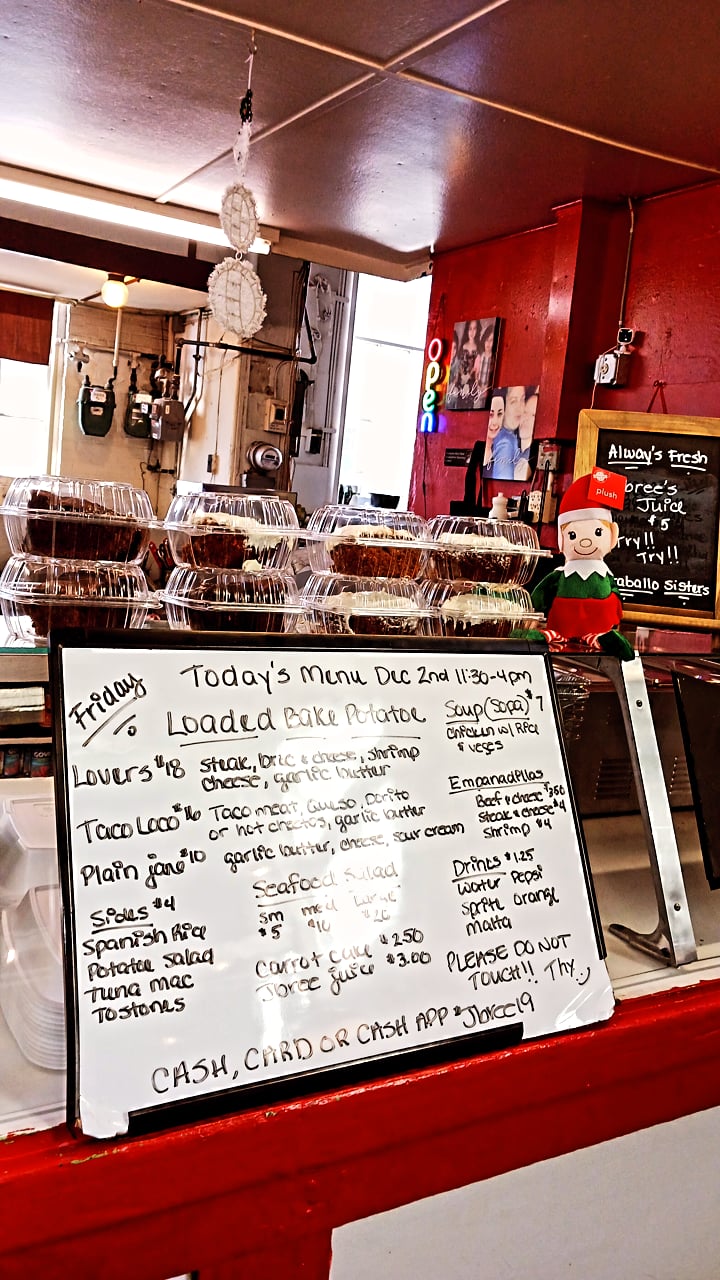 open
family
plush
Alway's Fresh
Jbree's
Juice
$5
Try!!
Try!!
Caraballo Sisters
Friday
Today's Menu Dec 2nd 11:30-4pm
Loaded Bake Potatoe
Lovers $18 steak, bric & cheese, shrimp
cheese, garlic butter
Taco Loco $16 Taco meat, Queso, Dorito
or hot cheetos, garlic butter
Plain jane $10 garlic butter, cheese, sour cream
Sides $4
Spanish Rice
Potatoe Salad
Tuna mac
Tostones
Seafood Salad
sm med Large
$5 $10 $20
Carrot Cake $2.50
Jbree juice $3.00
Soup(Sopa) $7
chicken w/ Rice
& veges
Empanadillas
Beef & cheese $3.50
Steak & cheese $4
Shrimp $4
Drinks $1.25
Water Pepsi
Sprite Orange
malta
PLEASE DO NOT
TOUCH!! Thy
CASH, CARD OR CASH APP $Jbree19